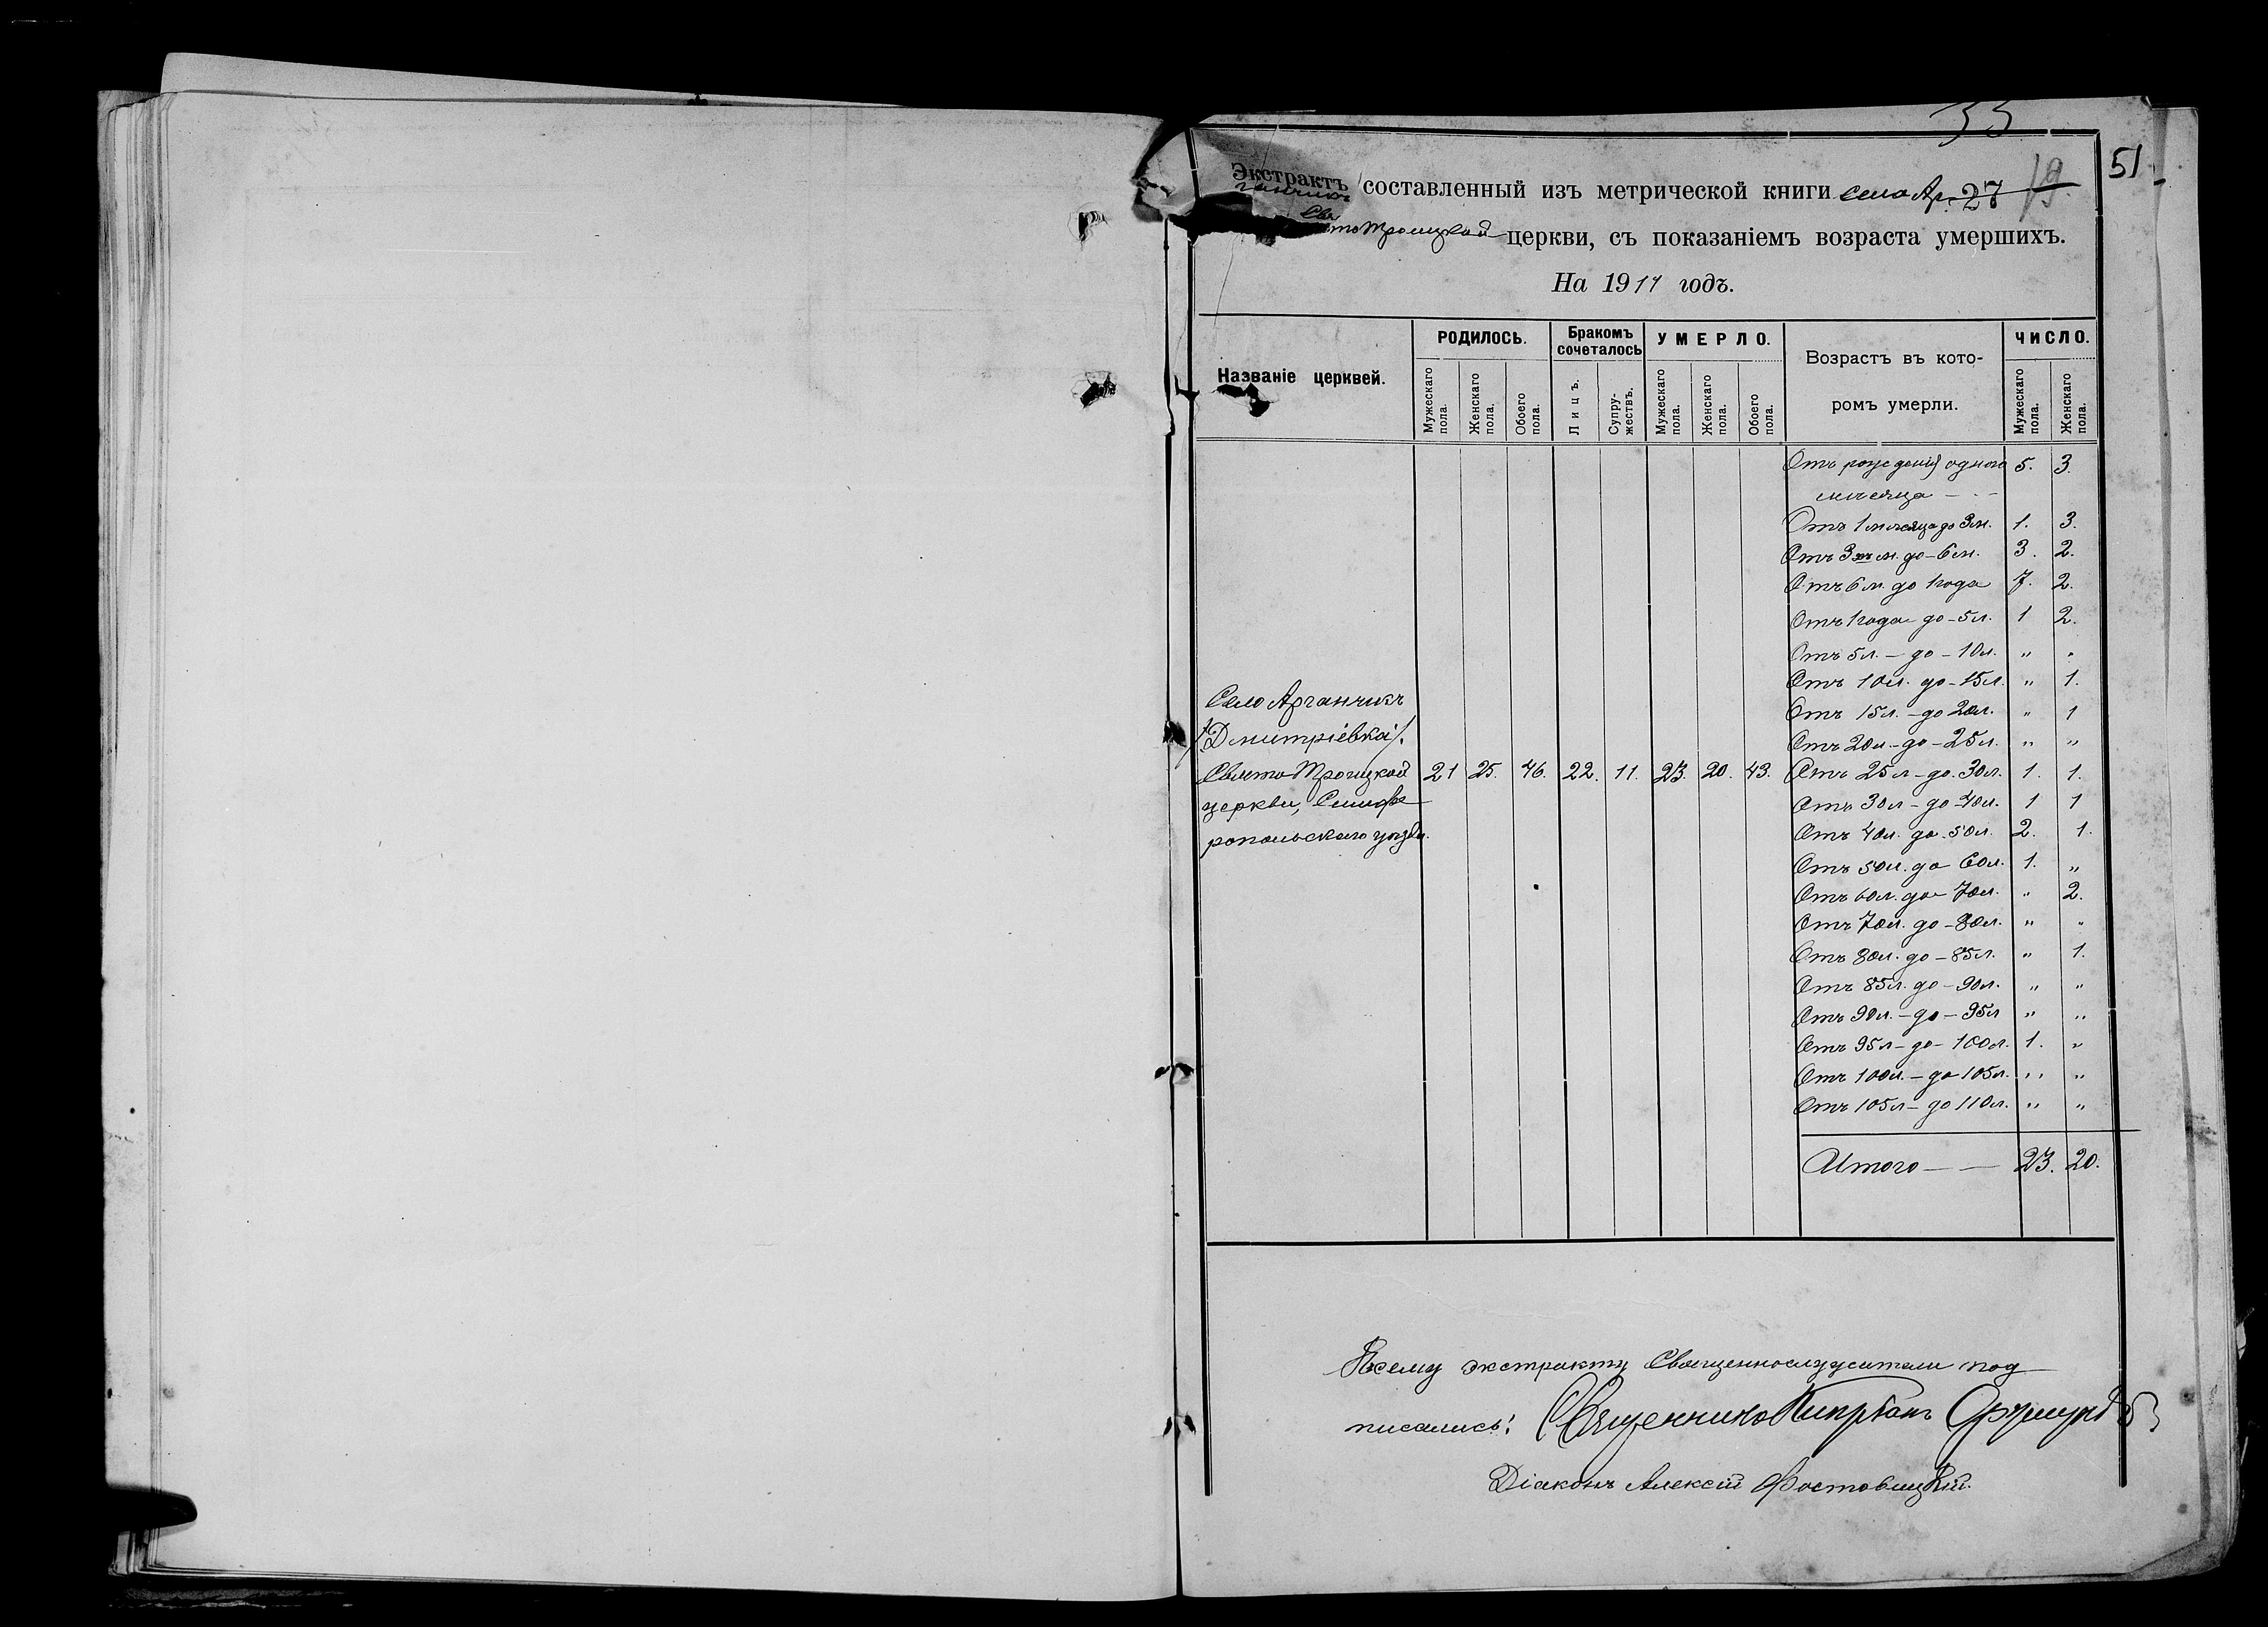 33
51
19.
Экстрактъ составленный изъ метрической книги село Ар- 27
ганчикъ
Свято Троицкой церкви, съ показаніемъ возраста умершихъ.
На 1917 годъ.
Названіе церквей.
РОДИЛОСЬ.
Мужескаго пола.
Женскаго пола.
Обоего пола.
Бракомъ сочеталось
Лицъ.
Супружествъ.
УМЕРЛО.
Мужескаго пола.
Женскаго пола.
Обоего пола.
Возрастъ въ кото-
ромъ умерли.
ЧИСЛО.
Мужескаго пола.
Женскаго пола.
Отъ рожденія одного 5. 3.
мѣсяца
Отъ 1 мѣсяца до 3 м. 1. 3.
Отъ 3хъ м. до - 6 м. 3. 2.
Отъ 6 м. до 1 года 7. 2.
Отъ 1 года до - 5 л. 1 2.
Отъ 5 л. - до - 10 л. " "
Отъ 10 л. до - 15 л. " 1.
Село Арганчикъ
Отъ 15 л. - до 20 л. " 1
/Дмитріевка/.
Отъ 20 л. - до - 25 л. " "
Свято Троицкой 21 25. 46. 22. 11. 23. 20. 43. Отъ 25 л - до. 30 л. 1. 1.
церкви, Симфе Отъ 30 л - до 40 л. 1 1
ропольскаго уѣзда. Отъ 40 л. до. 50 л. 2. 1.
Отъ 50 л. до 60 л. 1. "
Отъ 60 л. до 70 л. " 2.
Отъ 70 л. до - 80 л. " "
Отъ 80 л. до - 85 л. " 1.
Отъ 85 л. до - 90 л. " "
Отъ 90 л. - до - 95 л " "
Отъ 95 л - до - 100 л. 1. "
Отъ 100 л. - до 105 л. " "
Отъ 105 л - до 110 л. " "
Итого 23. 20.
Къ сему экстракту Священнослужители под
писались: Священникъ Кипріанъ
Діаконъ Алексій Фостовицкій.